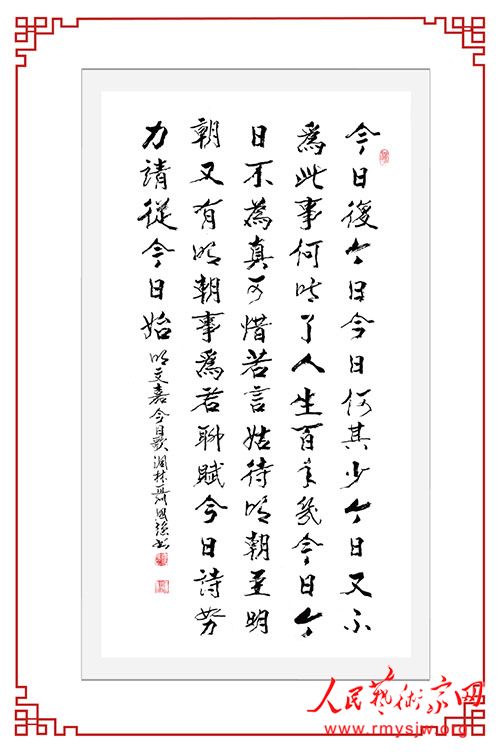 今日復今日今日何其少今日又不
爲此事何時了人生百年幾今日今
日不為真可惜若言姑待明朝至明
朝又有明朝事爲君聊賦今日詩努
力請從今日始
明文嘉今日歌
人民藝術家网
www.rmysjw.org